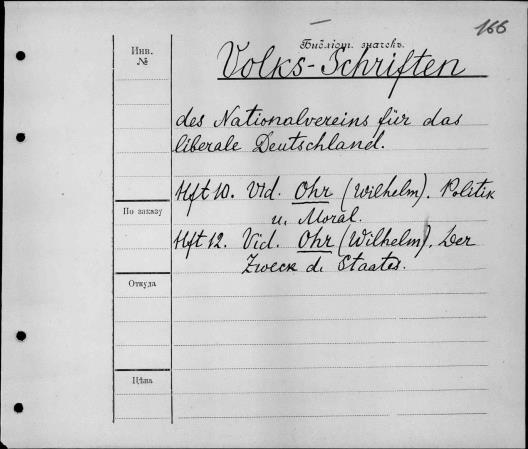 166
Инв.
№
Библіот. значекъ.
Volks-Schriften
des Nationalvereins für das
liberale Deutschland.
Hft 10. Vid. Ohr (Wilhelm). Politik
u. Moral.
По заказу
Hft 12. Vid. Ohr (Wilhelm). Der
Zweck d. Staates.
Откуда
Цѣна